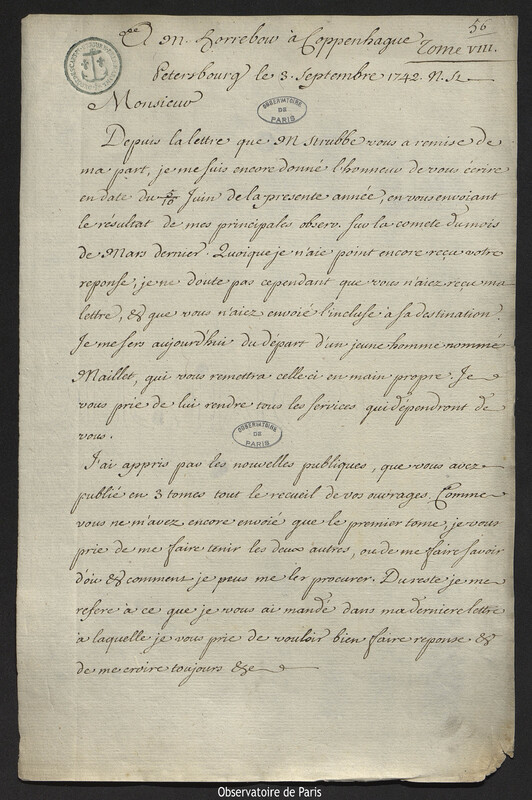 56
A M. Horrebow à Coppenhague
Tome VIII.
Petersbourg le 3. Septembre 1742. N. St.
Monsieur
OBSERVATOIRE
DE
PARIS
Depuis la lettre que M Strubbe vous a remise de
ma part, je me suis encore donné l'honneur de vous écrire
en date du Juin de la presente année, en vous envoiant
le résultat de mes principales observ. sur la comete du mois
de Mars dernier. Quoique je n'aie point encore reçu votre
reponse, je ne doute pas cependant que vous n'aiez reçu ma
lettre, & que vous n'aiez envoié l'incluse à sa destination.
Je me sers aujourd'hui du départ d'un jeune homme nommé
Maillet, qui vous remettra celle-ci en main propre. Je
vous prie de lui rendre tous les services qui dépendront de
vous.
OBSERVATOIRE
DE
PARIS
J'ai appris par les nouvelles publiques, que vous avez
publié en 3 tomes tout le recueil de vos ouvrages. Comme
vous ne m'avez encore envoié que le premier tome, je vous
prie de me faire tenir les deux autres, ou de me faire savoir
d'où & comment je peus me les procurer. Du reste je me
refere à ce que je vous ai mandé dans ma derniere lettre
à laquelle je vous prie de vouloir bien faire reponse &
de me croire toujours &c
Observatoire de Paris